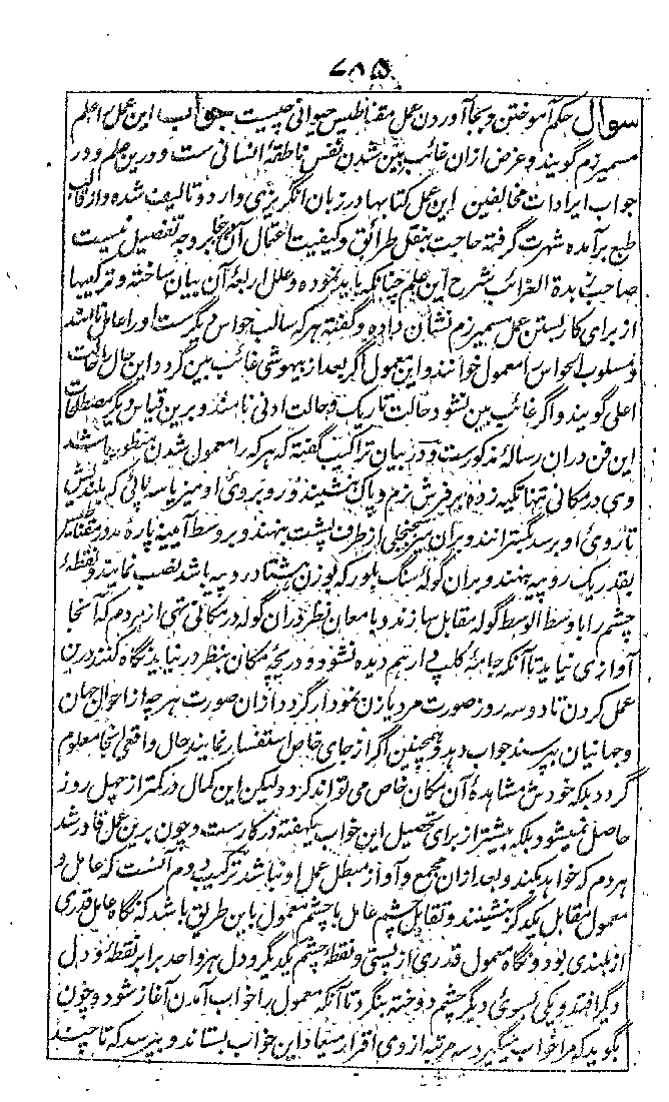 ۷۸۵
سوال حکم آموختن و بجا آوردن عمل مقناطیس حیوانی چیست جواب این عمل را علم
مسمیرزم گویند و غرض ازان غائب بین شدن نفس ناطقۂ انسانی ست و درین علم و در
جواب ایرادات مخالفین این عمل کتابها در زبان انگریزی و اردو تالیف شده و از قالب
طبع برآمده شهرت گرفته حاجت بنقل طرائق و کیفیت اعتمال آن بر وجه تفصیل نیست
صاحب زبدة الغرائب شرح این علم چنانکه باید نموده و علل اربعۂ آن بیان ساخته و ترکیبها
از برای کار بستن عمل مسمیرزم نشان داده و گفته هر که سالب حواس دیگرست او را عامل نامند
و مسلوب الحواس را معمول خوانند و این معمول اگر بعد از بیهوشی غائب بین گردد این حال را حالت
اعلی گویند و اگر غائب بین نشود حالت تاریک و حالت ادنی نامند و برین قیاس دیگر مصطلحات
این فن دران رسالہ مذکورست و در بیان تراکیب گفته که هر که را معمول شدن منظور باشد
وی در مکانی تنها تکیه زده بر فرش نرم و پاک نشیند و روبروی او میز یا سه پائی که بلندیش
تا روی او برسد بگسترانند و بران از طرف پشت بنهند و بر وسط آئینه پارۂ مدور مقناطیس
بقدر یک روپیه بنهند و بران گولۂ سنگ بلور که بوزن هشتاد روپیه باشد نصب نمایند و نقطۂ
چشم را با وسط الوسط گوله مقابل سازند و با معان نظر دران گوله در مکانی تهی از مردم که آنجا
آوازی نیاید تا آنکه جامۂ کلپ دار هم دیده نشود و دریچۂ مکان بنظر در نیاید نگاه کنند درین
عمل کردن تا دو سه روز صورت مرد یا زن نمودار گردد ازان صورت هر چه از احوال جهان
و جهانیان بپرسند جواب دهد و همچنین اگر از جای خاص استفسار نمایند حال واقعی آنجا معلوم
گردد بلکه خودش مشاهدۂ آن مکان خاص می تواند کرد ولیکن این کمال در کمتر از چهل روز
حاصل نمیشود بلکه بیشتر از برای تحصیل این خواب یکهفته در کارست و چون برین عمل قادر شد
هر دم که خواهد بکند و بعد ازان مجمع و آواز مبطل عمل او نباشد ترکیب دوم آنست که عامل و
معمول مقابل یکدگر بنشینند و تقابل چشم عامل با چشم معمول باین طریق باشد که نگاه عامل قدری
از بلندی بود و نگاه معمول قدری از پستی و نقطۂ چشم یکدیگر و دل هر واحد برابر نقطه و دل
دیگر افتد و یکی بسوی دیگر چشم دوخته بنگرد تا آنکه معمول را خواب آمدن آغاز شود و چون
بگوید که مرا خواب میگیرد سه مرتبه از وی اقرار میعاد این خواب بستاند و بپرسد که تا چند